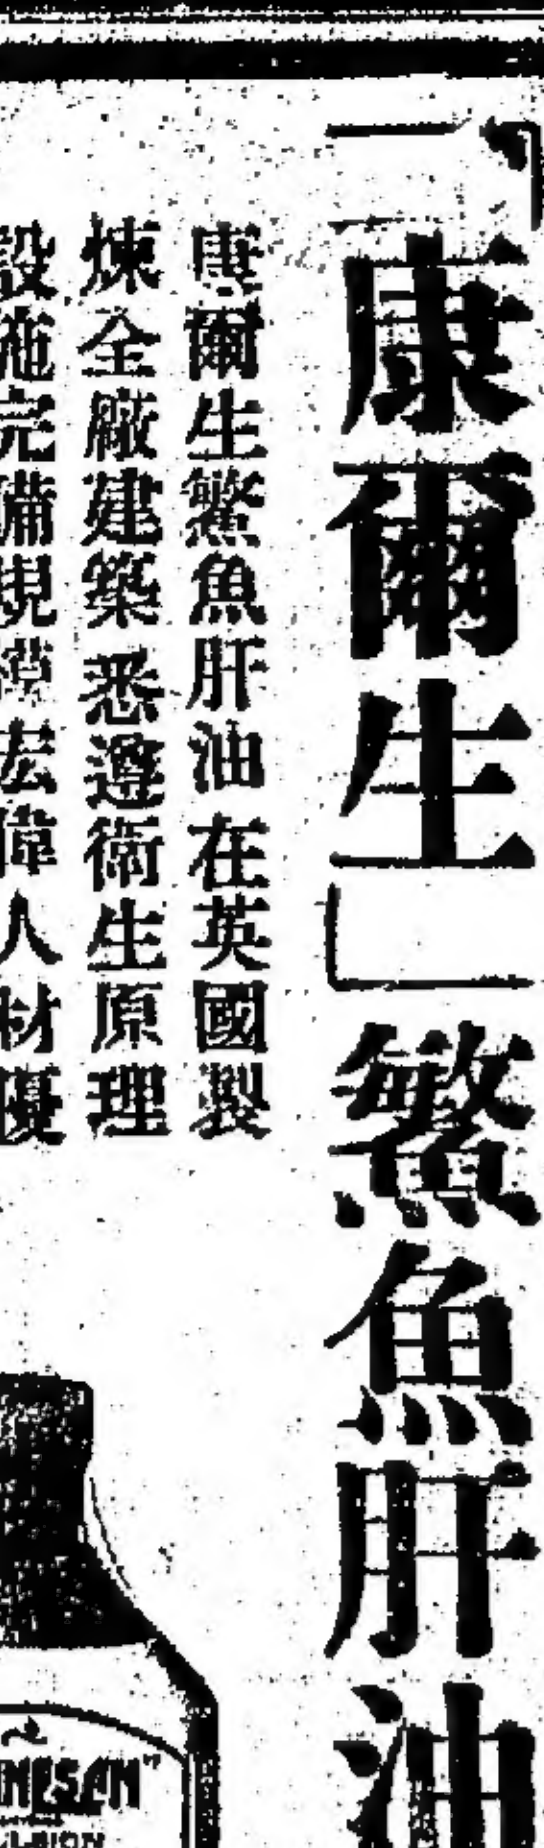 「康爾生」鱉魚肝油
康爾生鱉魚肝油在英國製
煉全廠建築悉遵衛生原理
設施完備規模宏偉人材優